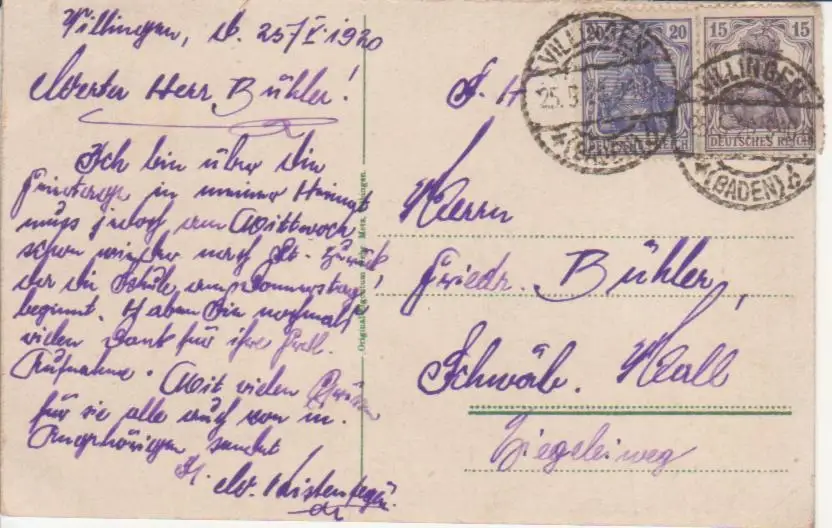 Villingen, d. 25/V. 1920
Werter Herr Bühler!
Ich bin über die
Feiertage in meiner Heimat
muss jedoch am Mittwoch
schon wieder nach St. zurück
da die Schule am Donnerstag
beginnt. Haben Sie nochmals
vielen Dank für ihre frdl.
Aufnahme. Mit vielen Grüssen
für sie alle auch von m.
Angehörigen sendet
Original-Eigentum Metz, Tübingen.
VILLINGEN
25.5
(BADEN)
20 20
DEUTSCHES REICH
15 15
DEUTSCHES REICH
VILLINGEN
*(BADEN)
Herrn
Friedr. Bühler,
Schwäb. Hall
Ziegeleiweg